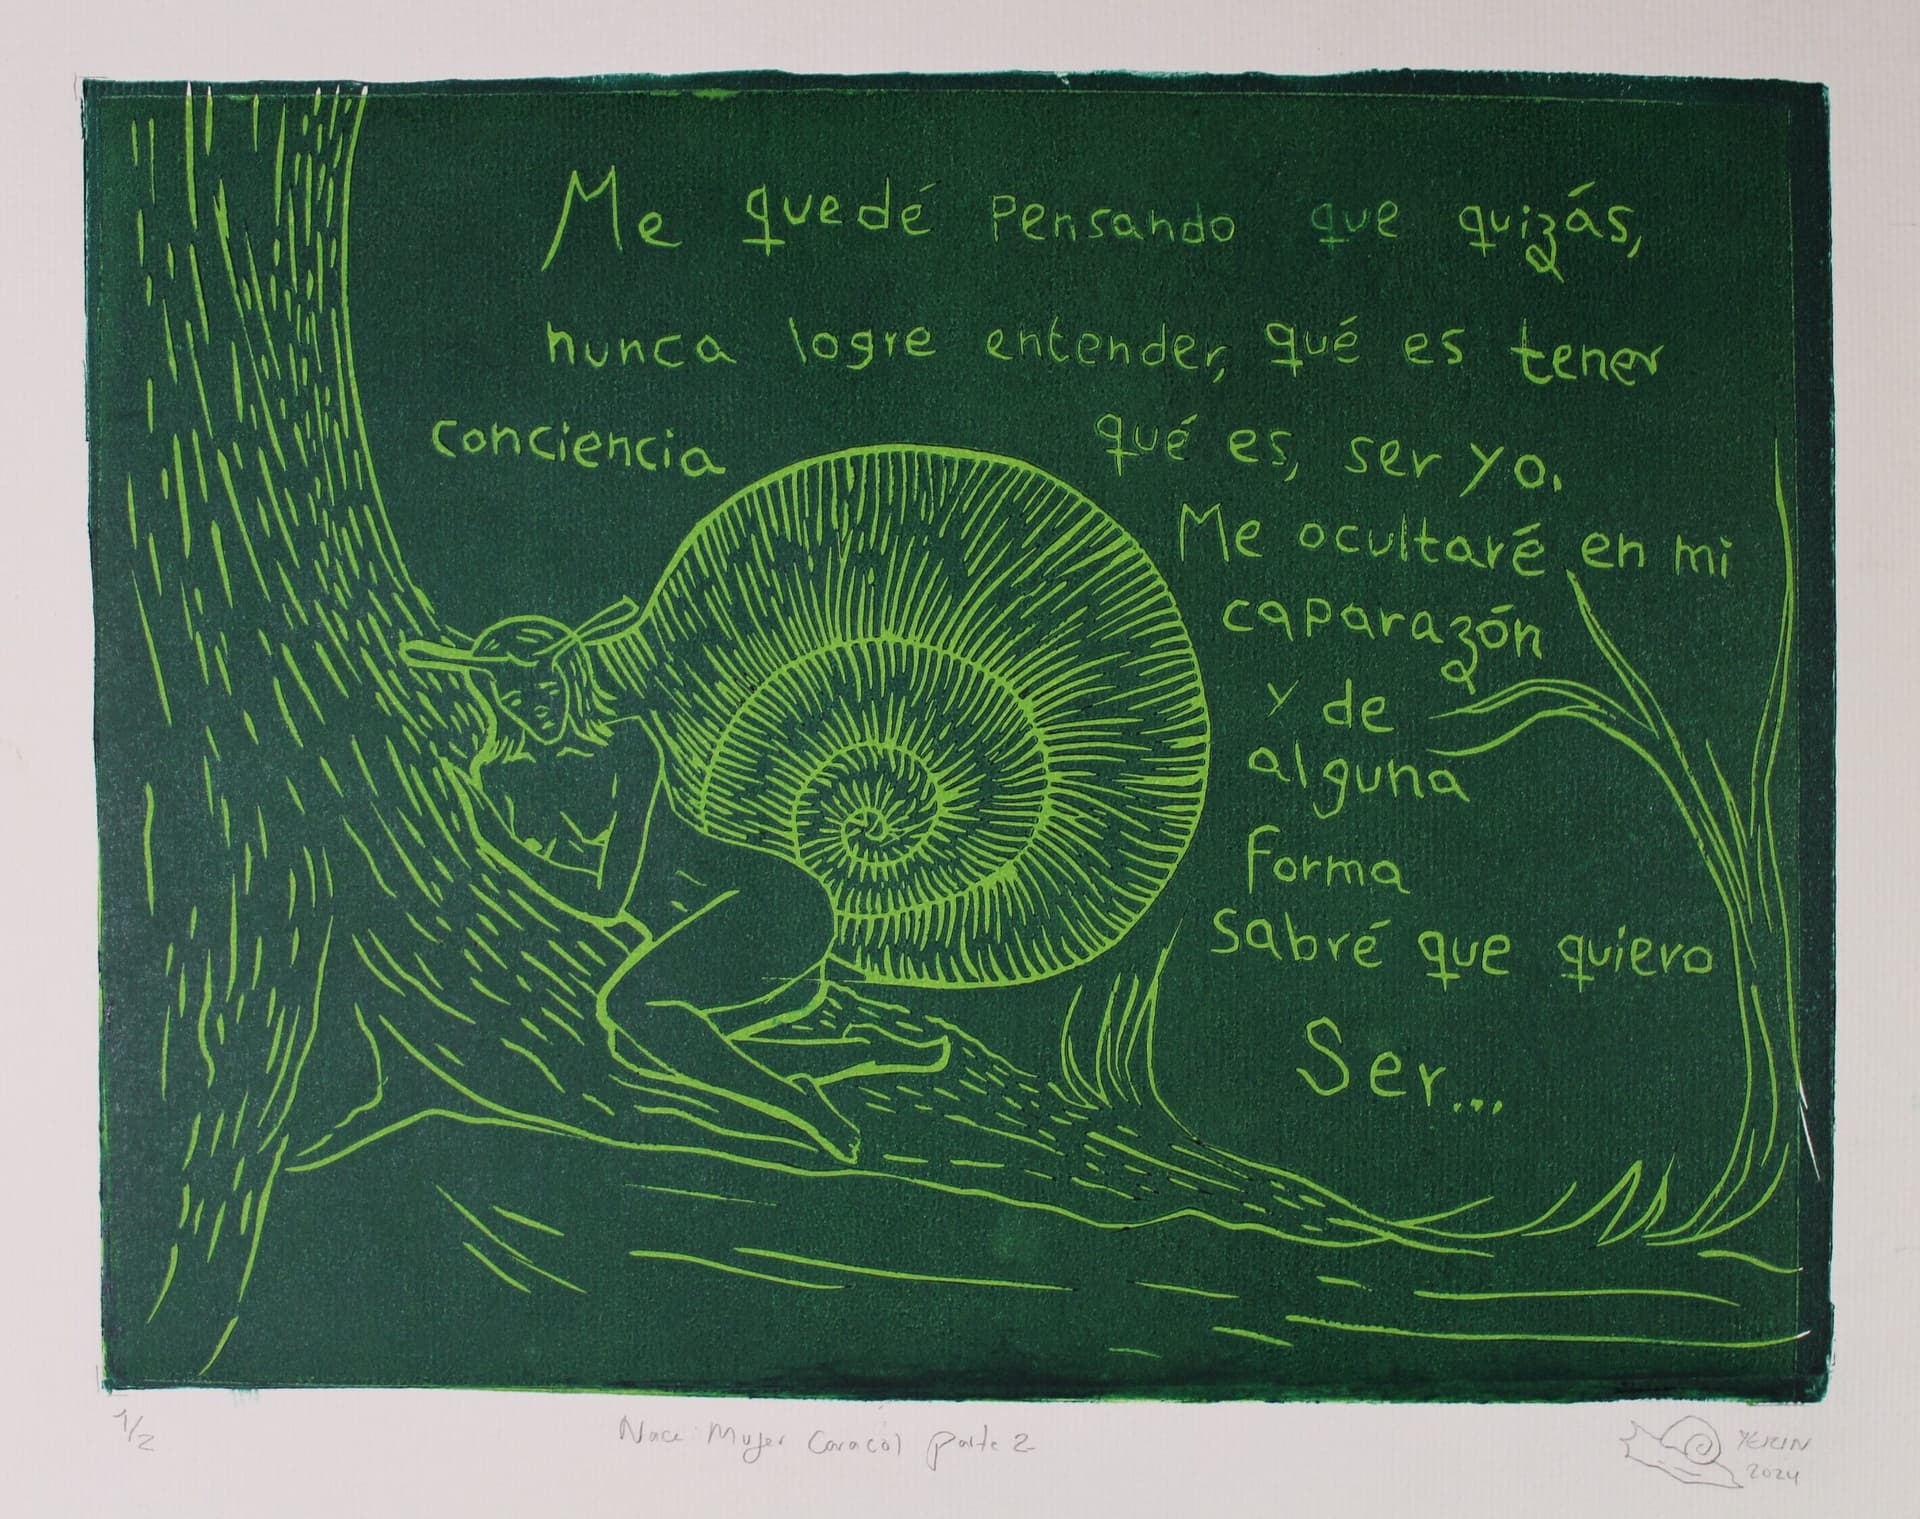 Me quedé pensando que quizás,
nunca logre entender, qué es tener
conciencia qué es, ser yo.
Me ocultaré en mi
caparazón
y de
alguna
forma
sabré que quiero
Ser...
1/2 Nace Mujer Caracol parte 2 YERIN
2024